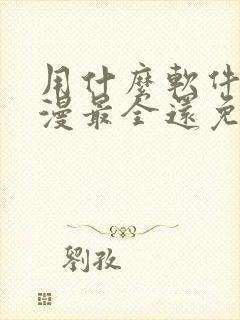 用什麼軟件
漫最全還免
劉孜